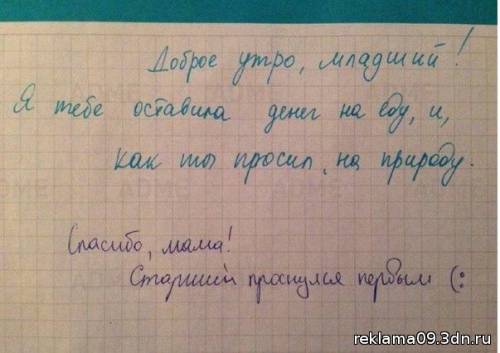 Доброе утро, младший!
Я тебе оставила денег на еду, и,
как ты просил, на природу.
Спасибо, мама!
Старший проснулся первым (:
reklama09.3dn.ru